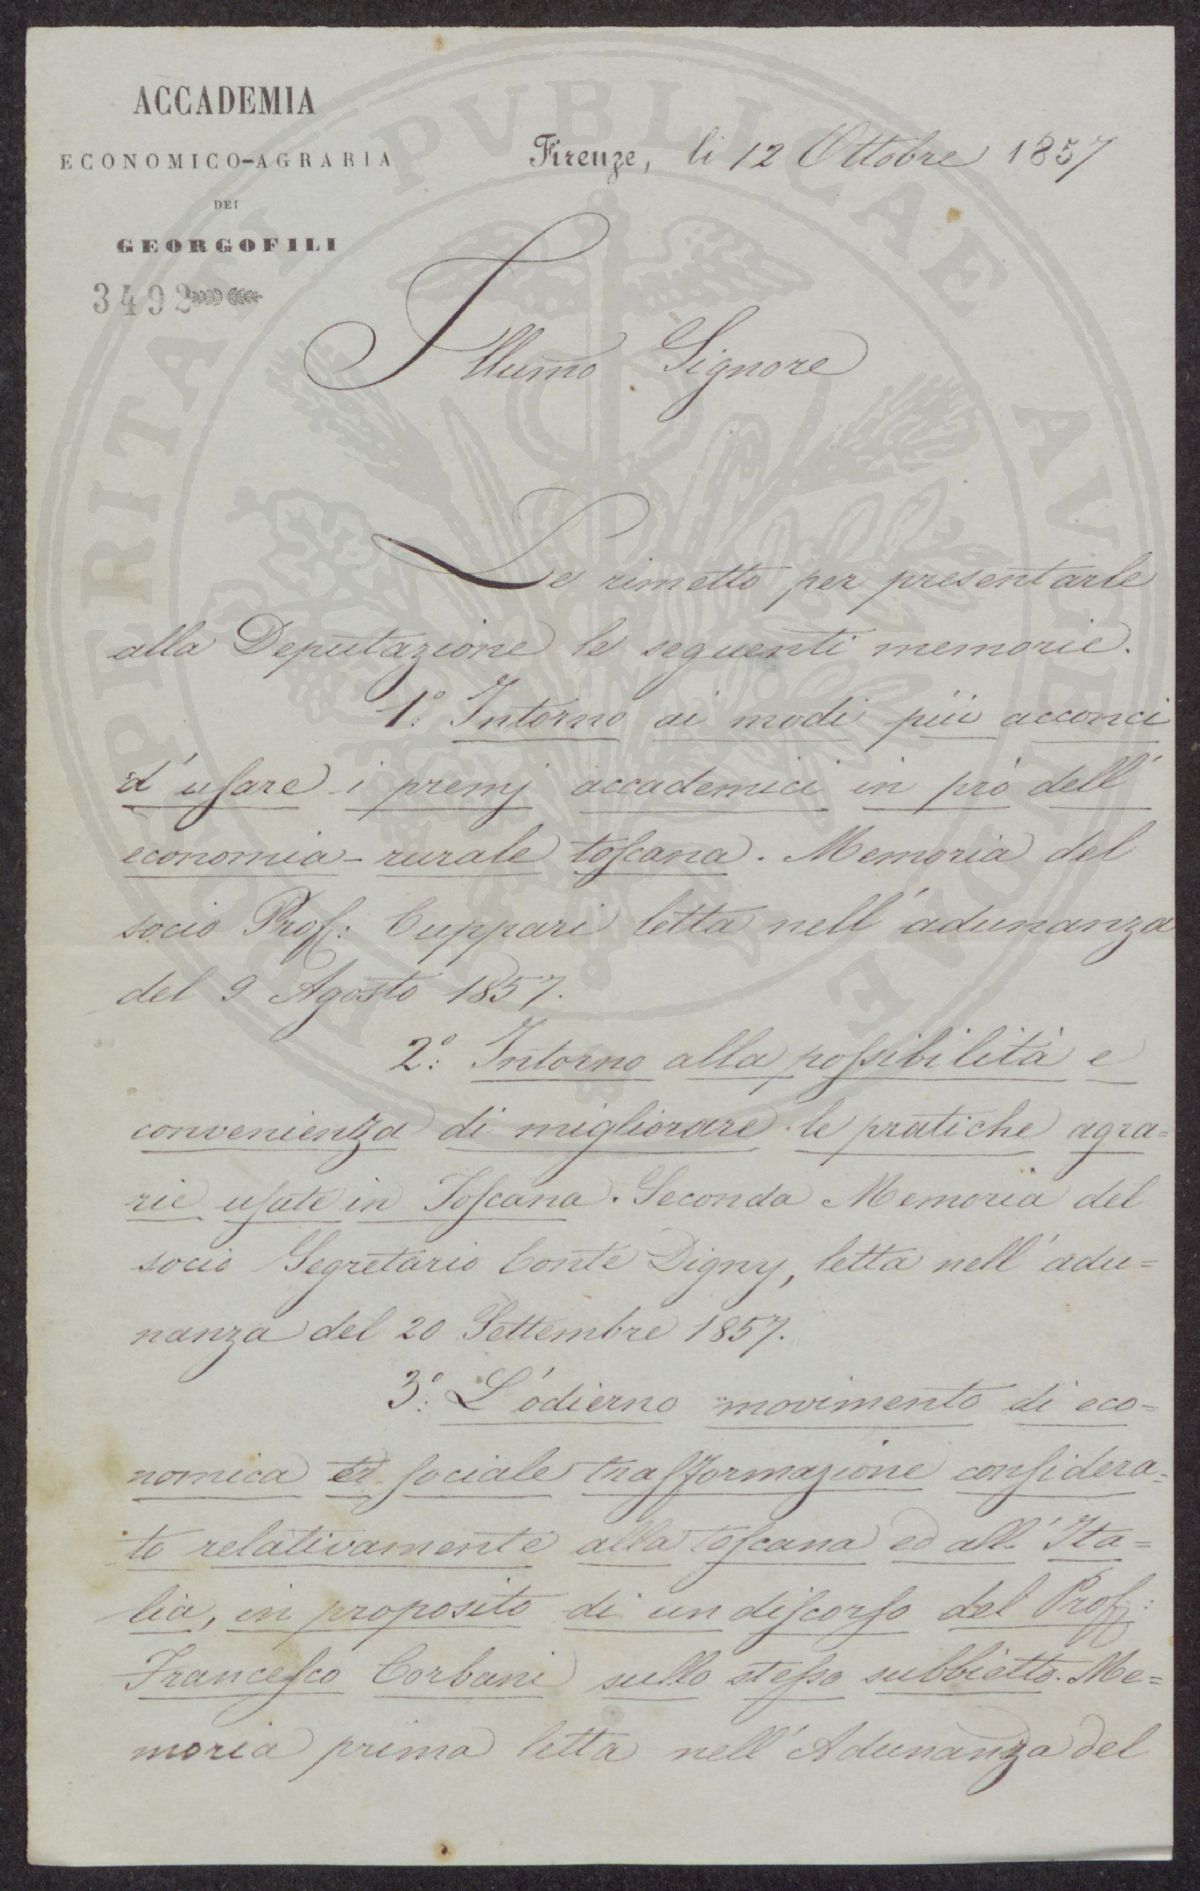 ACCADEMIA
ECONOMICO-AGRARIA
DEI
GEORGOFILI
3492
Firenze, li 12 Ottobre 1857
Illumo Signore
Le rimetto per presentarle
alla Deputazione le seguenti memorie.
1°: Intorno ai modi più acconci
d'usare i premj accademici in prò dell'
economia-rurale toscana. Memoria del
socio Prof: Cuppari letta nell'adunanza
del 9 Agosto 1857.
2°: Intorno alla possibilità e
convenienza di migliorare le pratiche agra=
rie usate in Toscana. Seconda Memoria del
socio Segretario Conte Digny, letta nell'adu=
nanza del 20 Settembre 1857.
3°: L'odierno movimento di eco=
nomica e sociale trasformazione considera=
to relativamente alla toscana ed all'Ita=
lia, in proposito di un discorso del Prof:
Francesco Corbani sullo stesso subbietto. Me=
moria prima letta nell'Adunanza del
COSPERITATI PVBLICAE AVGENDAE